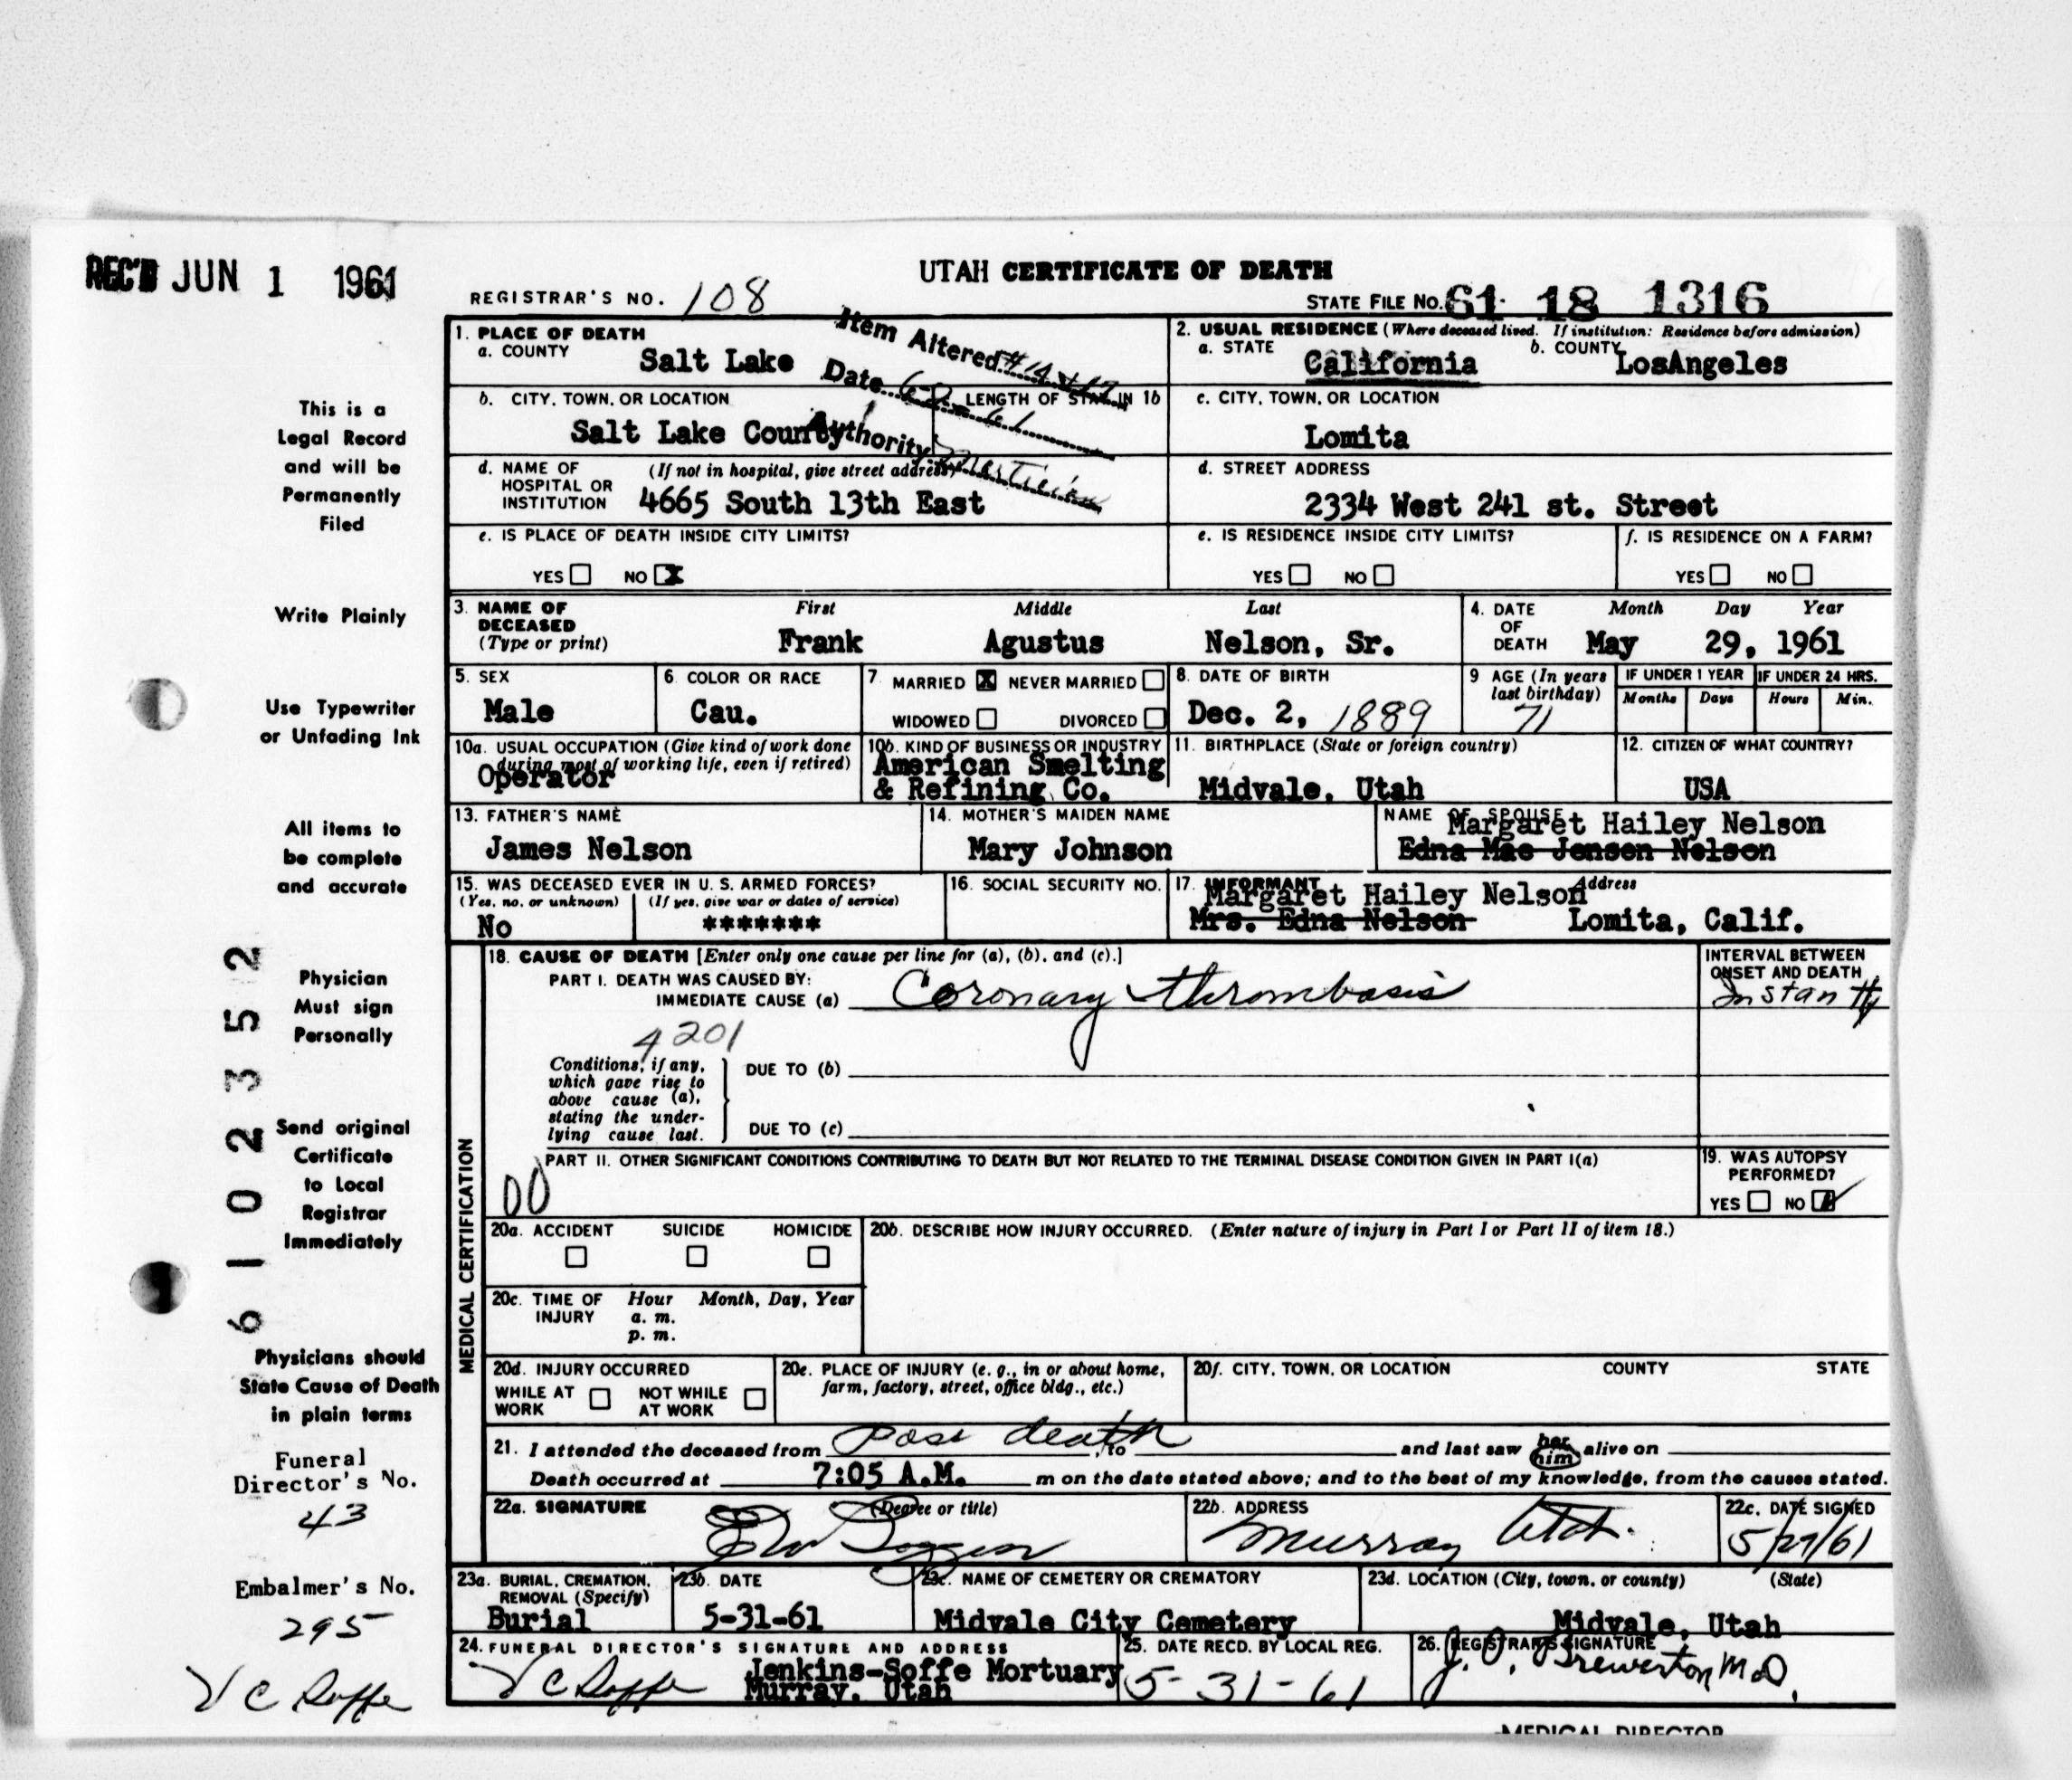 REC'D JUN 1 1961
UTAH CERTIFICATE OF DEATH
REGISTRAR'S NO. 108
STATE FILE No. 61- 18 1316
Item Altered #14 & 17
Date 6-2-61
Authority Mortician
1. PLACE OF DEATH
a. COUNTY Salt Lake
2. USUAL RESIDENCE (Where deceased lived. If institution: Residence before admission)
a. STATE California b. COUNTY LosAngeles
b. CITY, TOWN, OR LOCATION Salt Lake County
LENGTH OF STAY IN 1b
c. CITY, TOWN, OR LOCATION
Lomita
d. NAME OF HOSPITAL OR INSTITUTION (If not in hospital, give street address)
4665 South 13th East
d. STREET ADDRESS
2334 West 241 st. Street
e. IS PLACE OF DEATH INSIDE CITY LIMITS?
YES NO X
e. IS RESIDENCE INSIDE CITY LIMITS?
YES NO
f. IS RESIDENCE ON A FARM?
YES NO
3. NAME OF DECEASED (Type or print)
First Middle Last
Frank Agustus Nelson, Sr.
4. DATE OF DEATH Month Day Year
May 29, 1961
5. SEX
Male
6. COLOR OR RACE
Cau.
7. MARRIED X NEVER MARRIED
WIDOWED DIVORCED
8. DATE OF BIRTH
Dec. 2, 1889
9 AGE (In years last birthday)
71
IF UNDER 1 YEAR IF UNDER 24 HRS.
Months Days Hours Min.
10a. USUAL OCCUPATION (Give kind of work done during most of working life, even if retired)
Operator
10b. KIND OF BUSINESS OR INDUSTRY
American Smelting
& Refining Co.
11. BIRTHPLACE (State or foreign country)
Midvale, Utah
12. CITIZEN OF WHAT COUNTRY?
USA
13. FATHER'S NAME
James Nelson
14. MOTHER'S MAIDEN NAME
Mary Johnson
NAME OF SPOUSE
Margaret Hailey Nelson
Edna Mae Jensen Nelson
15. WAS DECEASED EVER IN U. S. ARMED FORCES?
(Yes, no, or unknown) (If yes, give war or dates of service)
No *******
16. SOCIAL SECURITY NO.
17. INFORMANT Address
Margaret Hailey Nelson
Mrs. Edna Nelson Lomita, Calif.
MEDICAL CERTIFICATION
18. CAUSE OF DEATH [Enter only one cause per line for (a), (b), and (c).]
PART I. DEATH WAS CAUSED BY:
IMMEDIATE CAUSE (a) Coronary thrombosis
INTERVAL BETWEEN ONSET AND DEATH
Instantly
4201
Conditions, if any, which gave rise to above cause (a), stating the underlying cause last.
DUE TO (b)
DUE TO (c)
PART II. OTHER SIGNIFICANT CONDITIONS CONTRIBUTING TO DEATH BUT NOT RELATED TO THE TERMINAL DISEASE CONDITION GIVEN IN PART I(a)
00
19. WAS AUTOPSY PERFORMED?
YES NO
20a. ACCIDENT SUICIDE HOMICIDE
20b. DESCRIBE HOW INJURY OCCURRED. (Enter nature of injury in Part I or Part II of item 18.)
20c. TIME OF INJURY Hour Month, Day, Year
a. m.
p. m.
20d. INJURY OCCURRED
WHILE AT WORK NOT WHILE AT WORK
20e. PLACE OF INJURY (e. g., in or about home, farm, factory, street, office bldg., etc.)
20f. CITY, TOWN, OR LOCATION COUNTY STATE
21. I attended the deceased from Post death, to and last saw her him alive on
Death occurred at 7:05 A.M. m on the date stated above; and to the best of my knowledge, from the causes stated.
22a. SIGNATURE (Degree or title)
22b. ADDRESS
Murray Utah.
22c. DATE SIGNED
5/29/61
23a. BURIAL, CREMATION, REMOVAL (Specify)
Burial
23b. DATE
5-31-61
23c. NAME OF CEMETERY OR CREMATORY
Midvale City Cemetery
23d. LOCATION (City, town, or county) (State)
Midvale, Utah
24. FUNERAL DIRECTOR'S SIGNATURE AND ADDRESS
V C Soffe Jenkins-Soffe Mortuary
Murray, Utah
25. DATE RECD. BY LOCAL REG.
5-31-61
26. REGISTRAR'S SIGNATURE
J. O. Brewerton M D,
MEDICAL DIRECTOR
This is a
Legal Record
and will be
Permanently
Filed
Write Plainly
Use Typewriter
or Unfading Ink
All items to
be complete
and accurate
Physician
Must sign
Personally
Send original
Certificate
to Local
Registrar
Immediately
Physicians should
State Cause of Death
in plain terms
Funeral
Director's No.
43
Embalmer's No.
295
V C Soffe
6 1 0 2 3 5 2